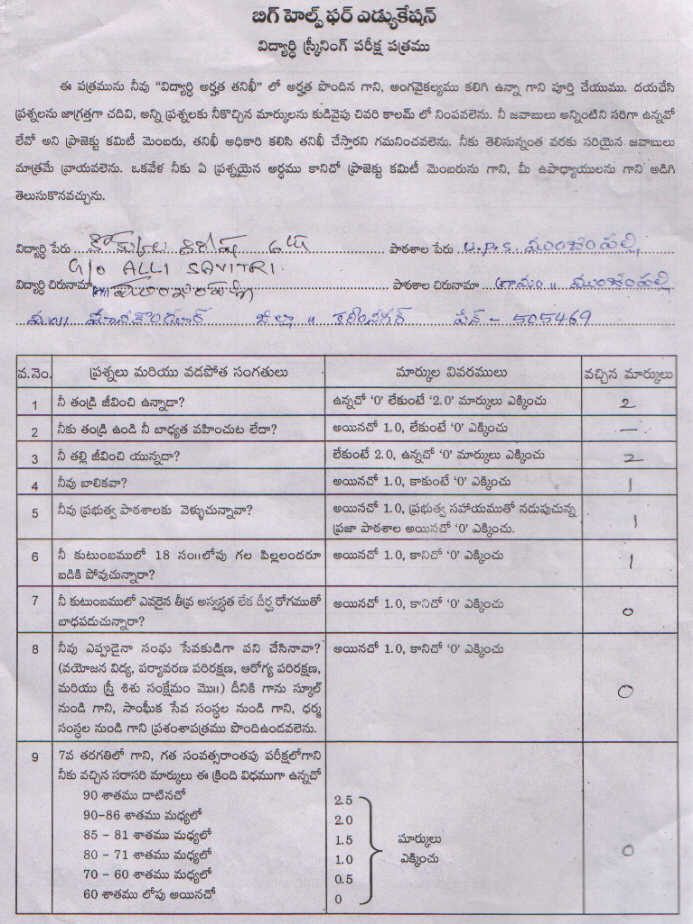 బిగ్ హెల్ప్ ఫర్ ఎడ్యుకేషన్
విద్యార్థి స్క్రీనింగ్ పరీక్ష పత్రము
ఈ పత్రమును నీవు "విద్యార్థి అర్హత తనిఖీ" లో అర్హత పొందిన గాని, అంగవైకల్యము కలిగి ఉన్నా గాని పూర్తి చేయుము. దయచేసి
ప్రశ్నలను జాగ్రత్తగా చదివి, అన్ని ప్రశ్నలకు నీకొచ్చిన మార్కులను కుడివైపు చివరి కాలమ్ లో నింపవలెను. నీ జవాబులు అన్నింటిని సరిగా ఉన్నవో
లేవో అని ప్రాజెక్టు కమిటీ మెంబరు, తనిఖీ అధికారి కలిసి తనిఖీ చేస్తారని గమనించవలెను. నీకు తెలిసున్నంత వరకు సరియైన జవాబులు
మాత్రమే వ్రాయవలెను. ఒకవేళ నీకు ఏ ప్రశ్నయైన అర్థము కానిచో ప్రాజెక్టు కమిటీ మెంబరును గాని, మీ ఉపాధ్యాయులను గాని అడిగి
తెలుసుకొనవచ్చును.
విద్యార్థి పేరు 6th పాఠశాల పేరు U.P.S. ముంజంపల్లి
G/o ALLI SAVITRI
విద్యార్థి చిరునామా పాఠశాల చిరునామా గ్రామం॥ ముంజంపల్లి
మం॥ మానకొండూర్ జిల్లా॥ కరీంనగర్ పిన్ - 505469
వ.నెం. ప్రశ్నలు మరియు వడపోత సంగతులు మార్కుల వివరములు వచ్చిన మార్కులు
1 నీ తండ్రి జీవించి ఉన్నాడా? ఉన్నచో '0' లేకుంటే '2.0' మార్కులు ఎక్కించు 2
2 నీకు తండ్రి ఉండి నీ బాధ్యత వహించుట లేదా? అయినచో 1.0, లేకుంటే '0' ఎక్కించు —
3 నీ తల్లి జీవించి యున్నదా? లేకుంటే 2.0, ఉన్నచో '0' మార్కులు ఎక్కించు 2
4 నీవు బాలికవా? అయినచో 1.0, కాకుంటే '0' ఎక్కించు 1
5 నీవు ప్రభుత్వ పాఠశాలకు వెళ్ళుచున్నావా? అయినచో 1.0, ప్రభుత్వ సహాయముతో నడుపుచున్న
ప్రజా పాఠశాల అయినచో '0' ఎక్కించు. 1
6 నీ కుటుంబములో 18 సం॥లోపు గల పిల్లలందరూ అయినచో 1.0, కానిచో '0' ఎక్కించు 1
బడికి పోవుచున్నారా?
7 నీ కుటుంబములో ఎవరైన తీవ్ర అస్వస్థత లేక దీర్ఘ రోగముతో అయినచో 1.0, కానిచో '0' ఎక్కించు 0
బాధపడుచున్నారా?
8 నీవు ఎప్పుడైనా సంఘ సేవకుడిగా పని చేసినావా? అయినచో 1.0, కానిచో '0' ఎక్కించు
(వయోజన విద్య, పర్యావరణ పరిరక్షణ, ఆరోగ్య పరిరక్షణ,
మరియు స్త్రీ శిశు సంక్షేమం మొ॥) దీనికి గాను స్కూల్ 0
నుండి గాని, సాంఘిక సేవ సంస్థల నుండి గాని, ధర్మ
సంస్థల నుండి గాని ప్రశంశాపత్రము పొందిఉండవలెను.
9 7వ తరగతిలో గాని, గత సంవత్సరాంతపు పరీక్షలోగాని
నీకు వచ్చిన సరాసరి మార్కులు ఈ క్రింది విధముగా ఉన్నచో
90 శాతము దాటినచో 2.5
90-86 శాతము మధ్యలో 2.0
85 - 81 శాతము మధ్యలో 1.5 మార్కులు
80 - 71 శాతము మధ్యలో 1.0 ఎక్కించు 0
70 - 60 శాతము మధ్యలో 0.5
60 శాతము లోపు అయినచో 0